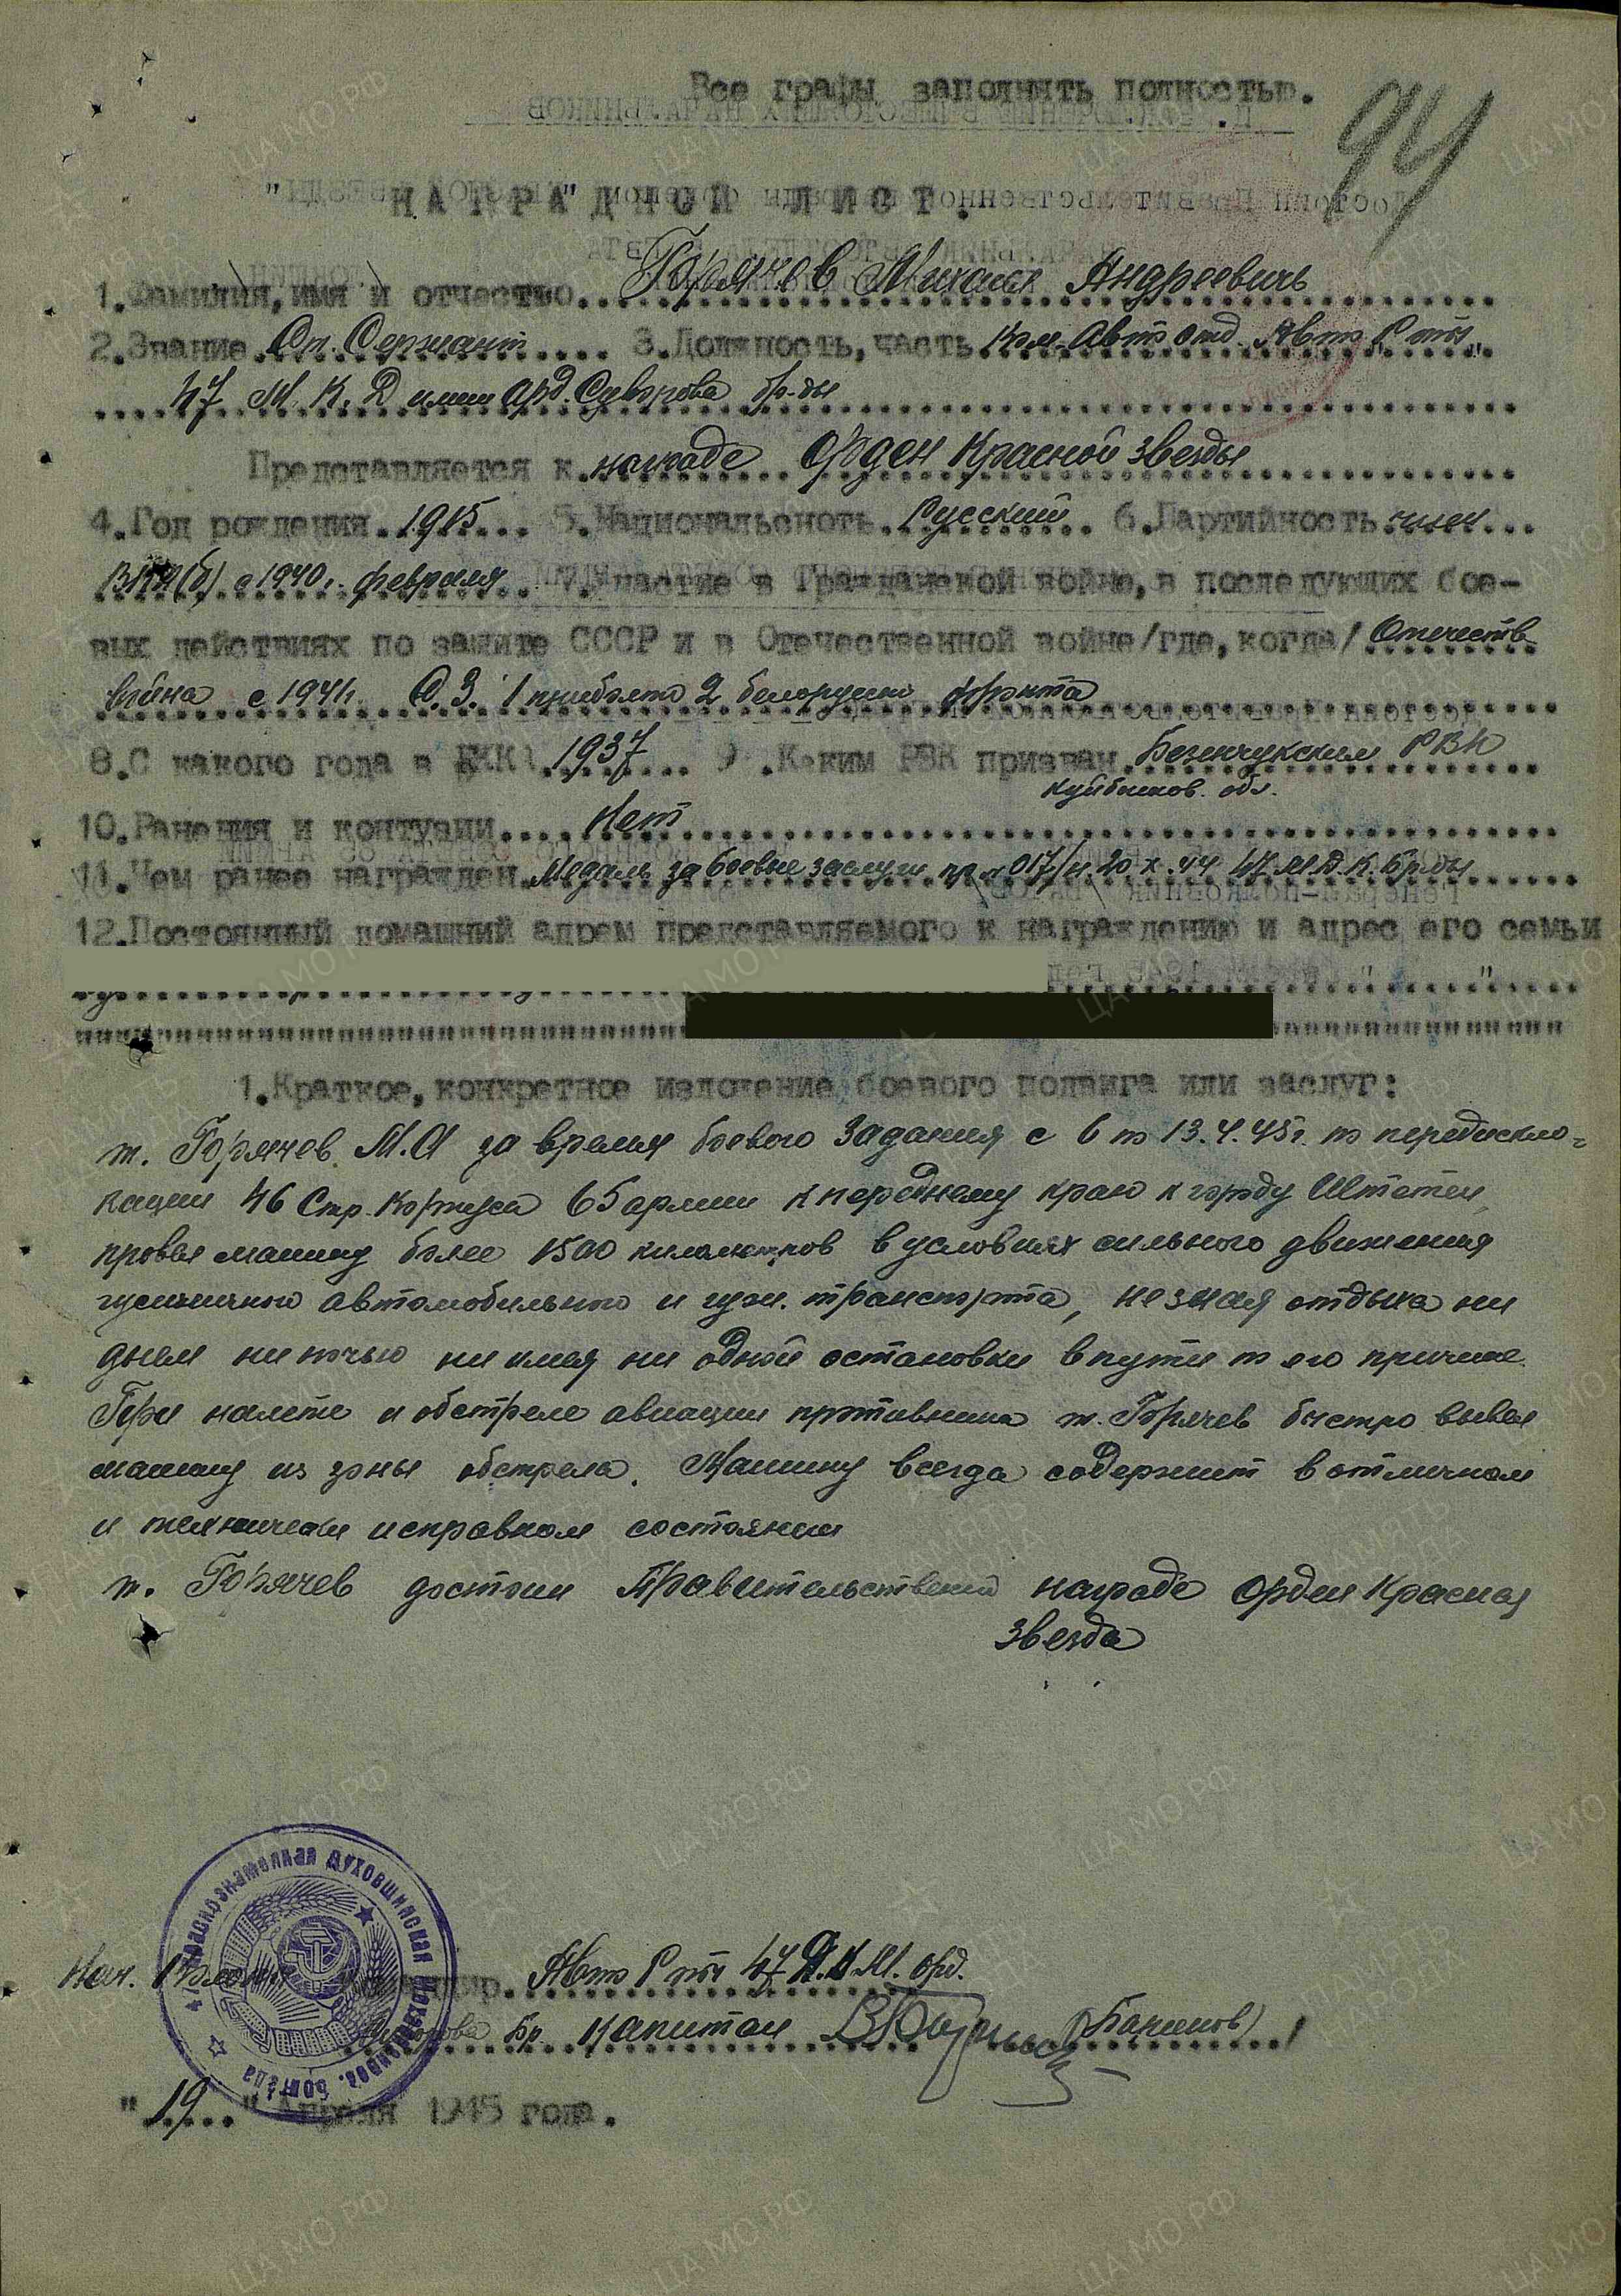 Все графы заполнить полностью.
94
НАГРАДНОЙ ЛИСТ.
1. Фамилия, имя и отчество Горячев Михаил Андреевичь
2. Звание Ст. Сержант 3. Должность, часть Ком. Авт отд. Авто Р ты
47 М. К. Д имии орд. Суворова бр-ды
Представляется к награде Орден Красной Звезды
4. Год рождения 1915 5. Национальсноть Русский 6. Партийность член
ВКП(б) с 1940 г. февраля 7. Участие в Гражданской войне, в последующих бое-
вых действиях по защите СССР и в Отечественной войне/где, когда/ Отечеств
война с 1941г. 1 прибалт 2 белорусск фронта
8. С какого года в РККА 1937 9. Каким РВК призван Безенчукским РВК
Куйбышов. обл.
10. Ранения и контузии Нет
11. Чем ранее награжден Медаль за боевые заслуги пр. 017/н 20.X.44 47 М.Д.К. бр-ды
12. Постоянный домашний адрем представляемого к награждению и адрес его семьи
1. Краткое, конкретное изложение боевого подвига или заслуг:
т. Горячев М.А за время боевого задания с 6 по 13.4.45г. по передискло-
кации 46 Стр. Корпуса 65 армии к переднему краю к городу Штетен,
провел машину более 1500 километров в условиях сильного движения
гусеничного автомобильного и гуж. транспорта, не зная отдыха ни
днем ни ночью ни имея ни одной остановки в пути по его причине.
При налете и обстреле авиации противника т. Горячев быстро вывел
машину из зоны обстрела. Машину всегда содержит в отличном
и технически исправном состоянии
т. Горячев достоин Правительственной награде Орден Красная
Звезда
47 Краснознаменная Духовщинская Механизиров. Бригада
Нач. Авто Р ты 47 Д.К.М. орд.
Суворова Бр. Капитан
"19" Апреля 1945 года.
ЦА МО РФ
ПАМЯТЬ НАРОДА